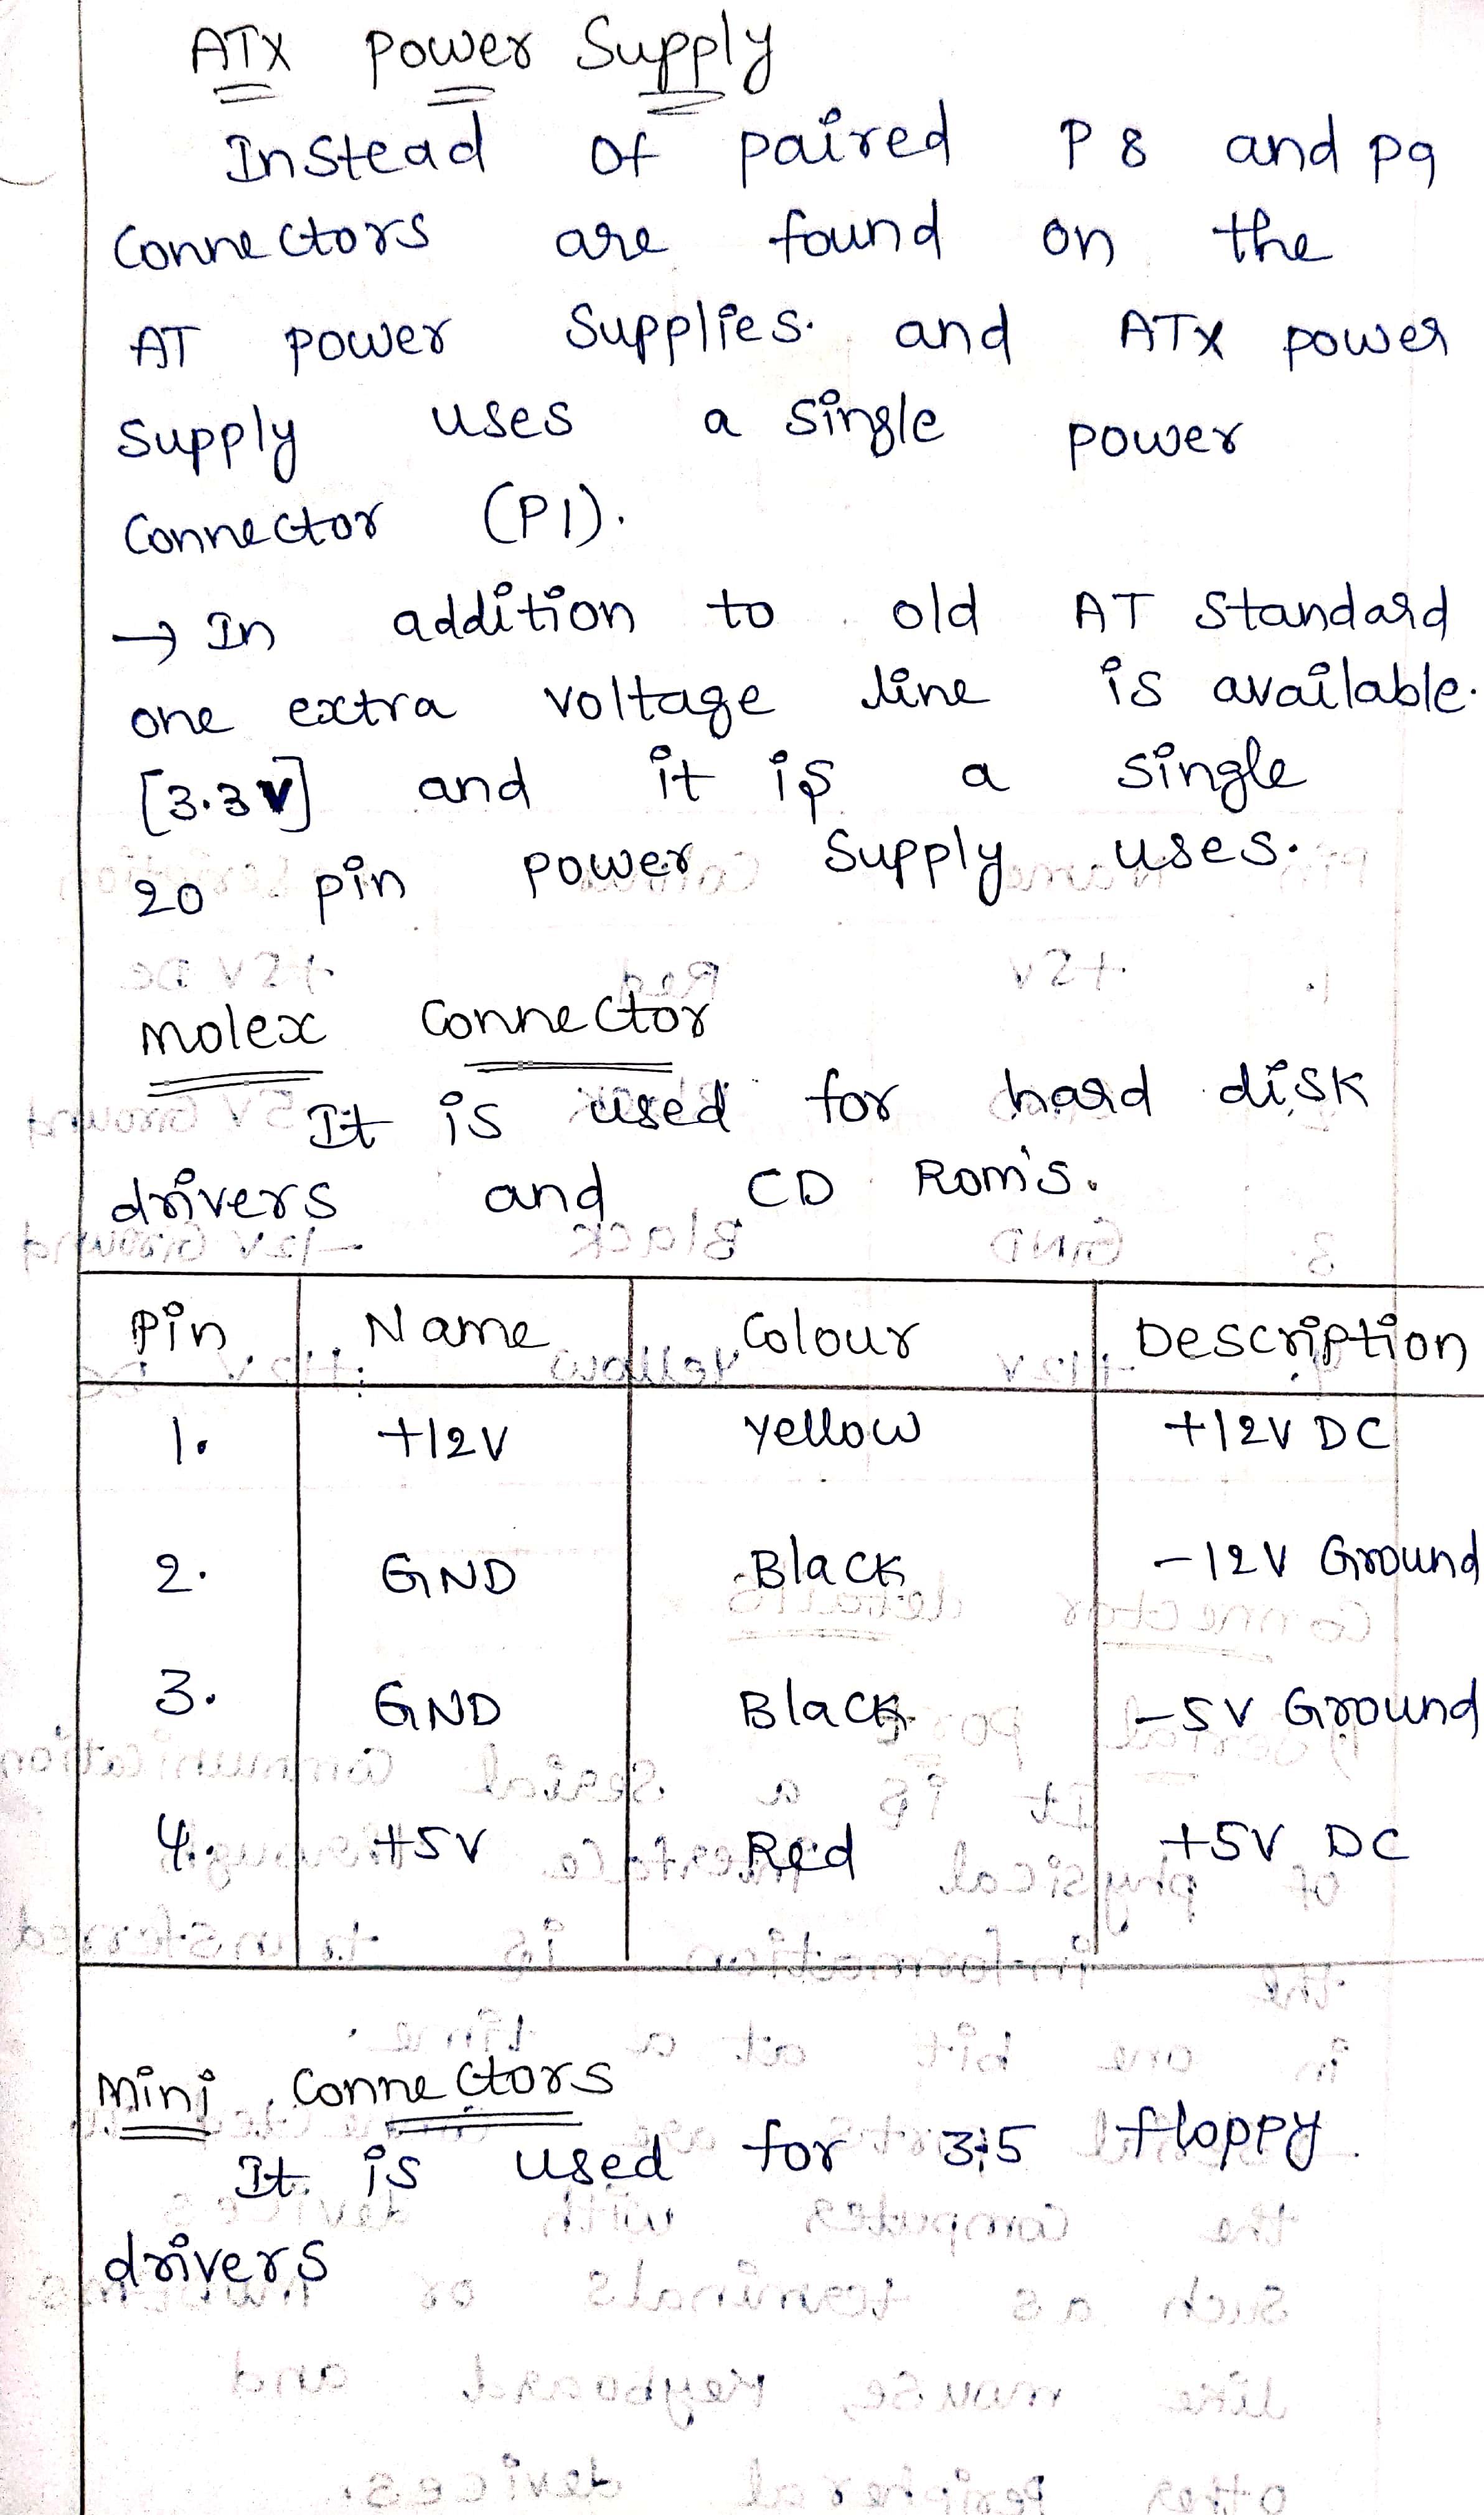 ATX Power Supply
Instead of paired P8 and P9
Connectors are found on the
AT power Supplies. and ATX power
Supply uses a single power
Connector (P1).
→ In addition to old AT Standard
one extra voltage line is available.
[3.3V] and it is a single
20 pin power Supply uses.
Molex Connector
It is used for hard disk
drivers and CD Rom's.
Pin Name Colour Description
1. +12V Yellow +12V DC
2. GND Black -12V Ground
3. GND Black -5V Ground
4. +5V Red +5V DC
Mini Connectors
It is used for 3.5 floppy
drivers